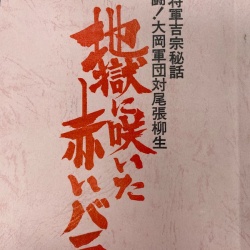 将軍吉宗秘話
闘!大岡軍団対尾張柳生
地獄に咲いた
赤いバラ